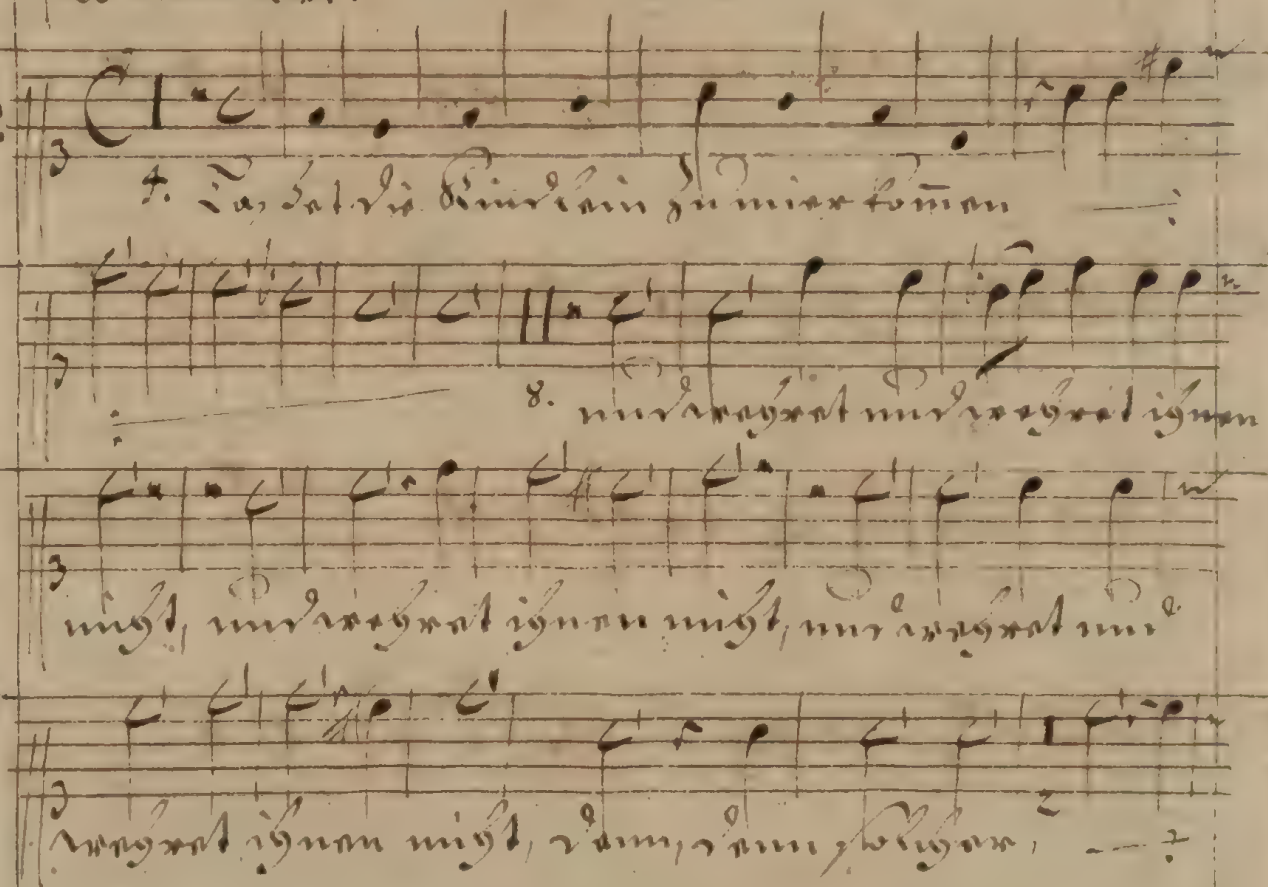 4. Lasset die Kindlein zu mier kom̅en
8. und wehret und wehret ihnen
nicht, und wehret ihnen nicht, und wehret und
wehret ihnen nicht, denn, denn solcher,